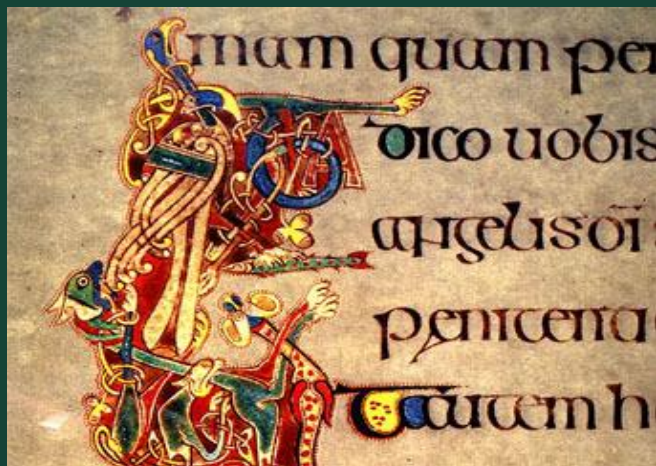 mam quam per
Ita dico uobis
angelis dī
penitentia
Ait autem h